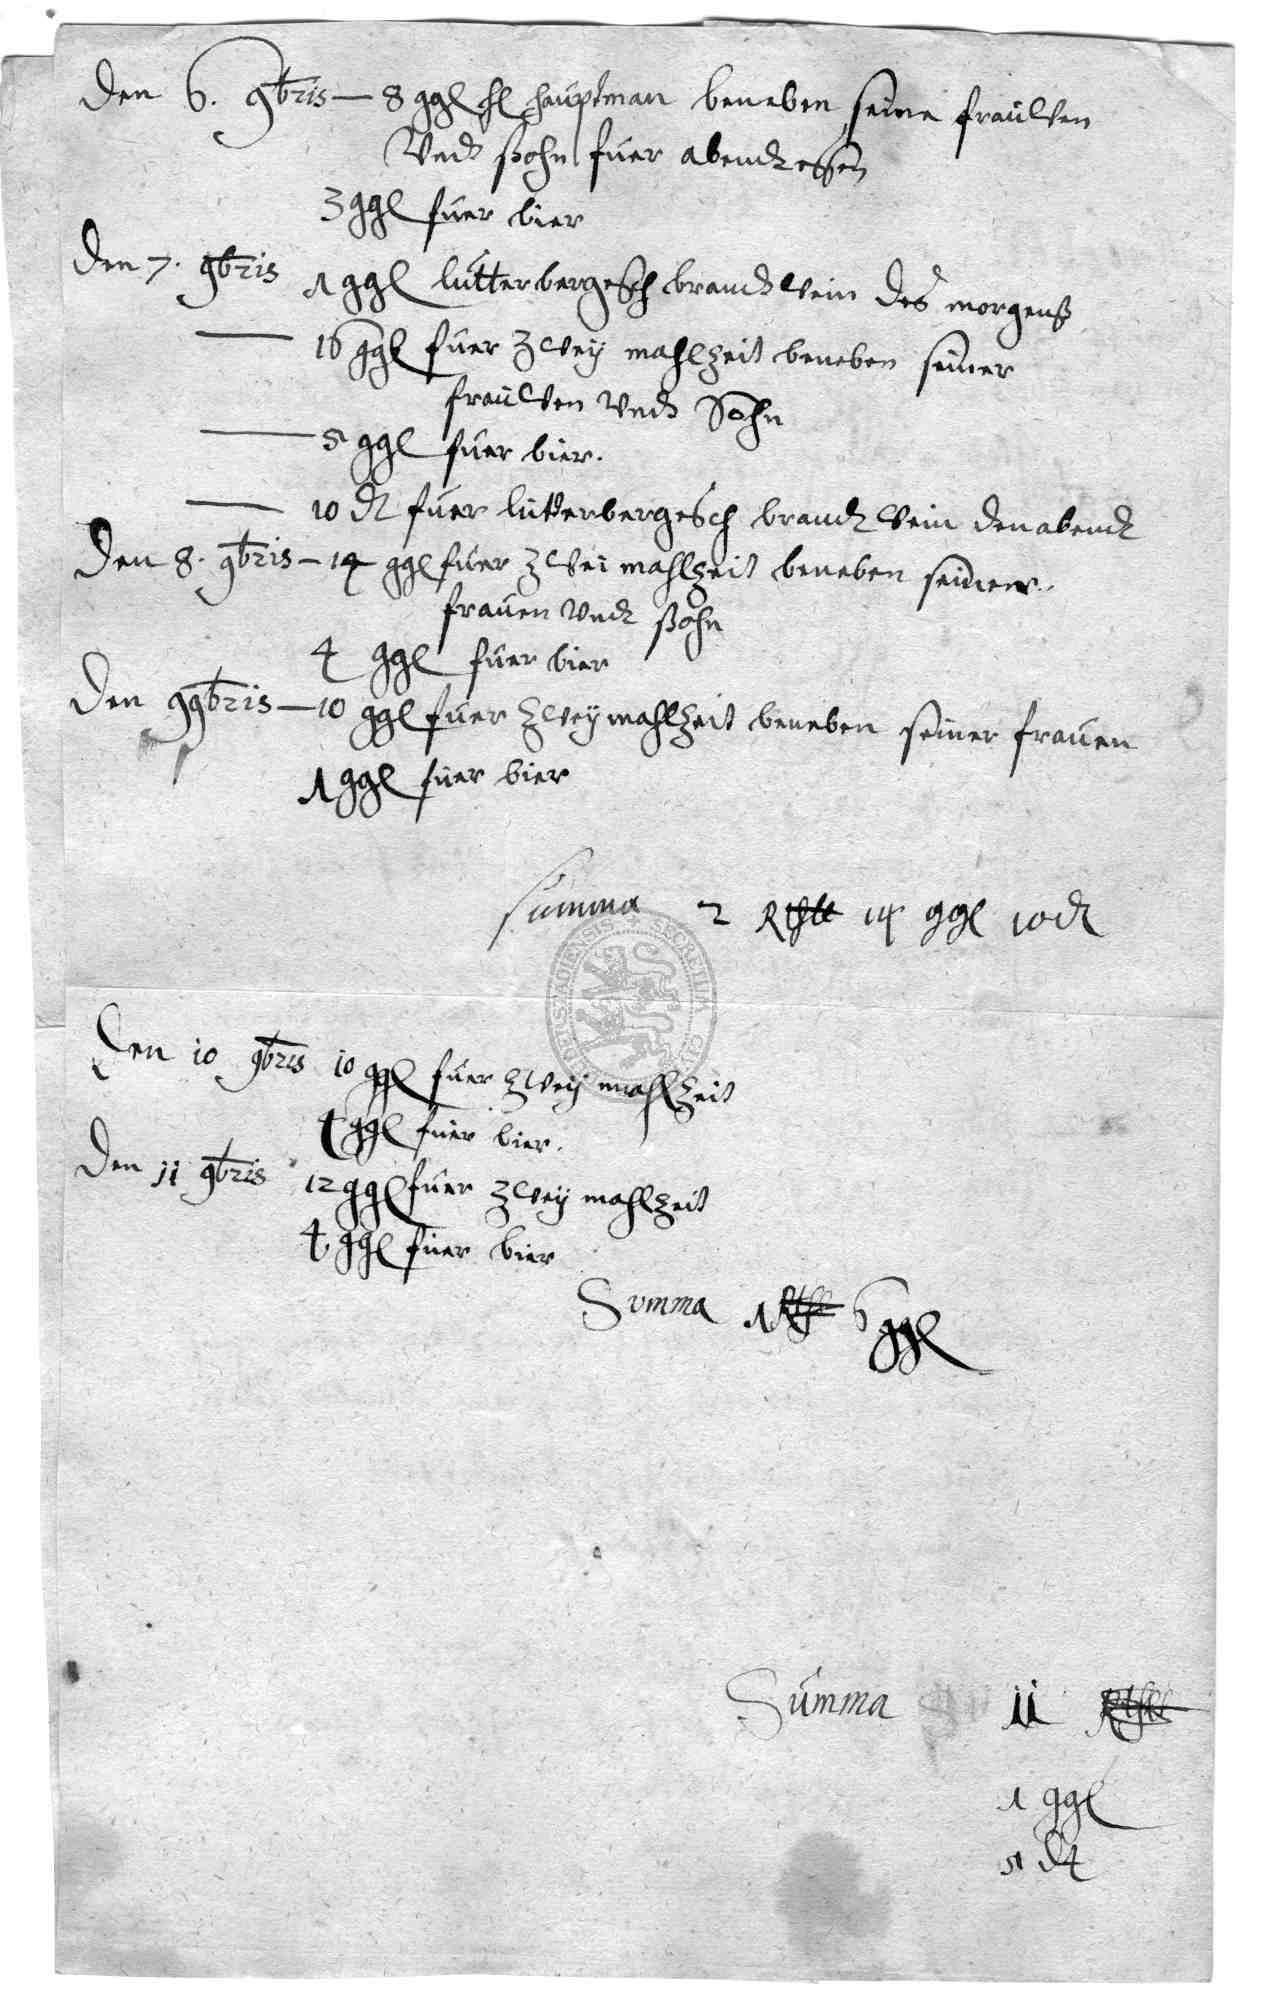 Den 6. 9bris — 8 ggl H hauptman beneben seine frauwen
Vndt sohn fuer abendtessen
3 ggl fuer bier
Den 7. 9bris 1 ggl lutterbergesch brandtwein des morgenß
— 16 ggl fuer zwey mahlzeit beneben seiner
frauwen Vndt Sohn
— 5 ggl fuer bier.
— 10 d fuer lutterbergesch brandtwein den abendt
Den 8. 9bris — 14 ggl fuer zwei mahlzeit beneben seiner
frauen Vndt sohn
4 ggl fuer bier
Den 9 9bris — 10 ggl fuer zwey mahlzeit beneben seiner frauen
1 ggl fuer bier
Summa 2 Rthlr 14 ggl 10 d
Den 10 9bris 10 ggl fuer zwey mahlzeit
4 ggl fuer bier.
Den 11 9bris 12 ggl fuer zwey mahlzeit
4 ggl fuer bier
Summa 1 Rthlr 6 ggl
Summa 11 Rthlr
1 ggl
5 d